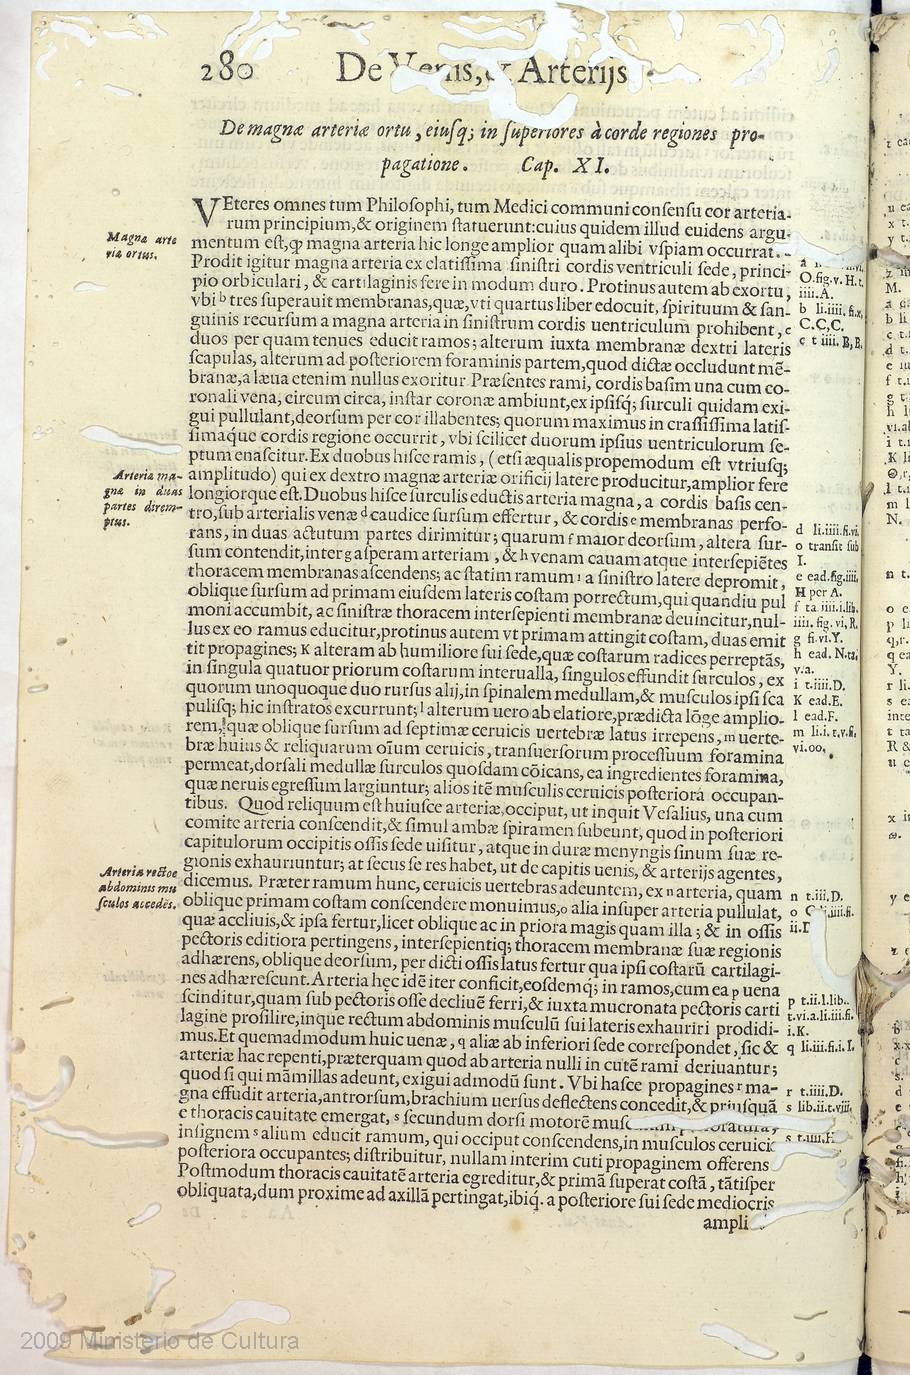 280 De Venis, & Arterijs
De magnæ arteriæ ortu, eiusq; in superiores à corde regiones pro-
pagatione. Cap. XI.
VEteres omnes tum Philosophi, tum Medici communi consensu cor arteria-
rum principium, & originem statuerunt: cuius quidem illud euidens argu-
mentum est, ꝙ magna arteria hic longe amplior quam alibi vspiam occurrat.
Prodit igitur magna arteria ex elatissima sinistri cordis ventriculi sede, princi-
pio orbiculari, & cartilaginis fere in modum duro. Protinus autem ab exortu,
vbi b tres superauit membranas, quæ, vti quartus liber edocuit, spirituum & san-
guinis recursum a magna arteria in sinistrum cordis uentriculum prohibent, c
duos per quam tenues educit ramos; alterum iuxta membranæ dextri lateris
scapulas, alterum ad posteriorem foraminis partem, quod dictæ occludunt mē-
branæ, a læua etenim nullus exoritur. Præsentes rami, cordis basim una cum co-
ronali vena, circum circa, instar coronæ ambiunt, ex ipsisq; surculi quidam exi-
gui pullulant, deorsum per cor illabentes; quorum maximus in crassissima latis-
simaque cordis regione occurrit, vbi scilicet duorum ipsius uentriculorum se-
ptum enascitur. Ex duobus hisce ramis, (etsi æqualis propemodum est vtriusq;
amplitudo) qui ex dextro magnæ arteriæ orificij latere producitur, amplior fere
longiorque est. Duobus hisce surculis eductis arteria magna, a cordis basis cen-
tro, sub arterialis venæ d caudice sursum effertur, & cordis e membranas perfo-
rans, in duas actutum partes dirimitur; quarum f maior deorsum, altera sur-
sum contendit, inter g asperam arteriam, & h venam cauam atque intersepiētes
thoracem membranas ascendens; ac statim ramum i a sinistro latere depromit,
oblique sursum ad primam eiusdem lateris costam porrectum, qui quandiu pul
moni accumbit, ac sinistræ thoracem intersepienti membranæ deuincitur, nul-
lus ex eo ramus educitur, protinus autem vt primam attingit costam, duas emit
tit propagines; K alteram ab humiliore sui sede, quæ costarum radices perreptās,
in singula quatuor priorum costarum interualla, singulos effundit surculos, ex
quorum unoquoque duo rursus alij, in spinalem medullam, & musculos ipsi sca
pulisq; hic instratos excurrunt; l alterum uero ab elatiore, prædicta lōge amplio-
rem, quæ oblique sursum ad septimæ ceruicis uertebræ latus irrepens, m uerte-
bræ huius & reliquarum oīum ceruicis, transuersorum processuum foramina
permeat, dorsali medullæ surculos quosdam cōicans, ea ingredientes foramina,
quæ neruis egressum largiuntur; alios itē musculis ceruicis posteriora occupan-
tibus. Quod reliquum est huiusce arteriæ, occiput, ut inquit Vesalius, una cum
comite arteria conscendit, & simul ambæ spiramen subeunt, quod in posteriori
capitulorum occipitis ossis sede uisitur, atque in duræ menyngis sinum suæ re-
gionis exhauriuntur; at secus se res habet, ut de capitis uenis, & arterijs agentes,
dicemus. Præter ramum hunc, ceruicis uertebras adeuntem, ex n arteria, quam
oblique primam costam conscendere monuimus, o alia insuper arteria pullulat,
quæ accliuis, & ipsa fertur, licet oblique ac in priora magis quam illa; & in ossis
pectoris editiora pertingens, intersepientiq; thoracem membranæ suæ regionis
adhærens, oblique deorsum, per dicti ossis latus fertur qua ipsi costarū cartilagi-
nes adhærescunt. Arteria hęc idē iter conficit, eosdemq; in ramos, cum ea p uena
scinditur, quam sub pectoris osse decliuē ferri, & iuxta mucronata pectoris carti
lagine prosilire, inque rectum abdominis musculū sui lateris exhauriri prodidi-
mus. Et quemadmodum huic uenæ, q aliæ ab inferiori sede correspondet, sic &
arteriæ hac repenti, præterquam quod ab arteria nulli in cutē rami deriuantur;
quod si qui māmillas adeunt, exigui admodū sunt. Vbi hasce propagines r ma-
gna effudit arteria, antrorsum, brachium uersus deflectens concedit, & priusquā
e thoracis cauitate emergat, s secundum dorsi motorē
insignem s alium educit ramum, qui occiput conscendens, in musculos ceruicis
posteriora occupantes; distribuitur, nullam interim cuti propaginem offerens
Postmodum thoracis cauitatē arteria egreditur, & primā superat costā, tātisper
obliquata, dum proxime ad axillā pertingat, ibiq́. a posteriore sui sede mediocris
ampli
Magna arte
riæ ortus.
Arteria ma-
gna in duas
partes direm-
ptus.
Arteriæ rectos
abdominis mu
sculos accedēs.
O. fig. v. H. t.
iiii. A.
b li. iiii. fi. x,
C. C, C.
c t iiii. B, B.
d li. iiii. fi. vi.
o transit sub
I.
e ead. fig. iiii,
H per A.
f ta iiii. i. lib.
iiii. fig. vi, R.
g fi. vi. Y.
h ead. N. ta;
v. a.
i t. iiii. D.
K ead. E.
l ead. F.
m li. i. t, v. fi,
vi. oo,
n t. iii, D.
p t. ii. l. lib..
t. vi. a. li. iii. fi.
i. K.
q li. iii. fi. i. I.
r t. iiii. D.
s lib. ii. t. viii,
2009 Ministerio de Cultura